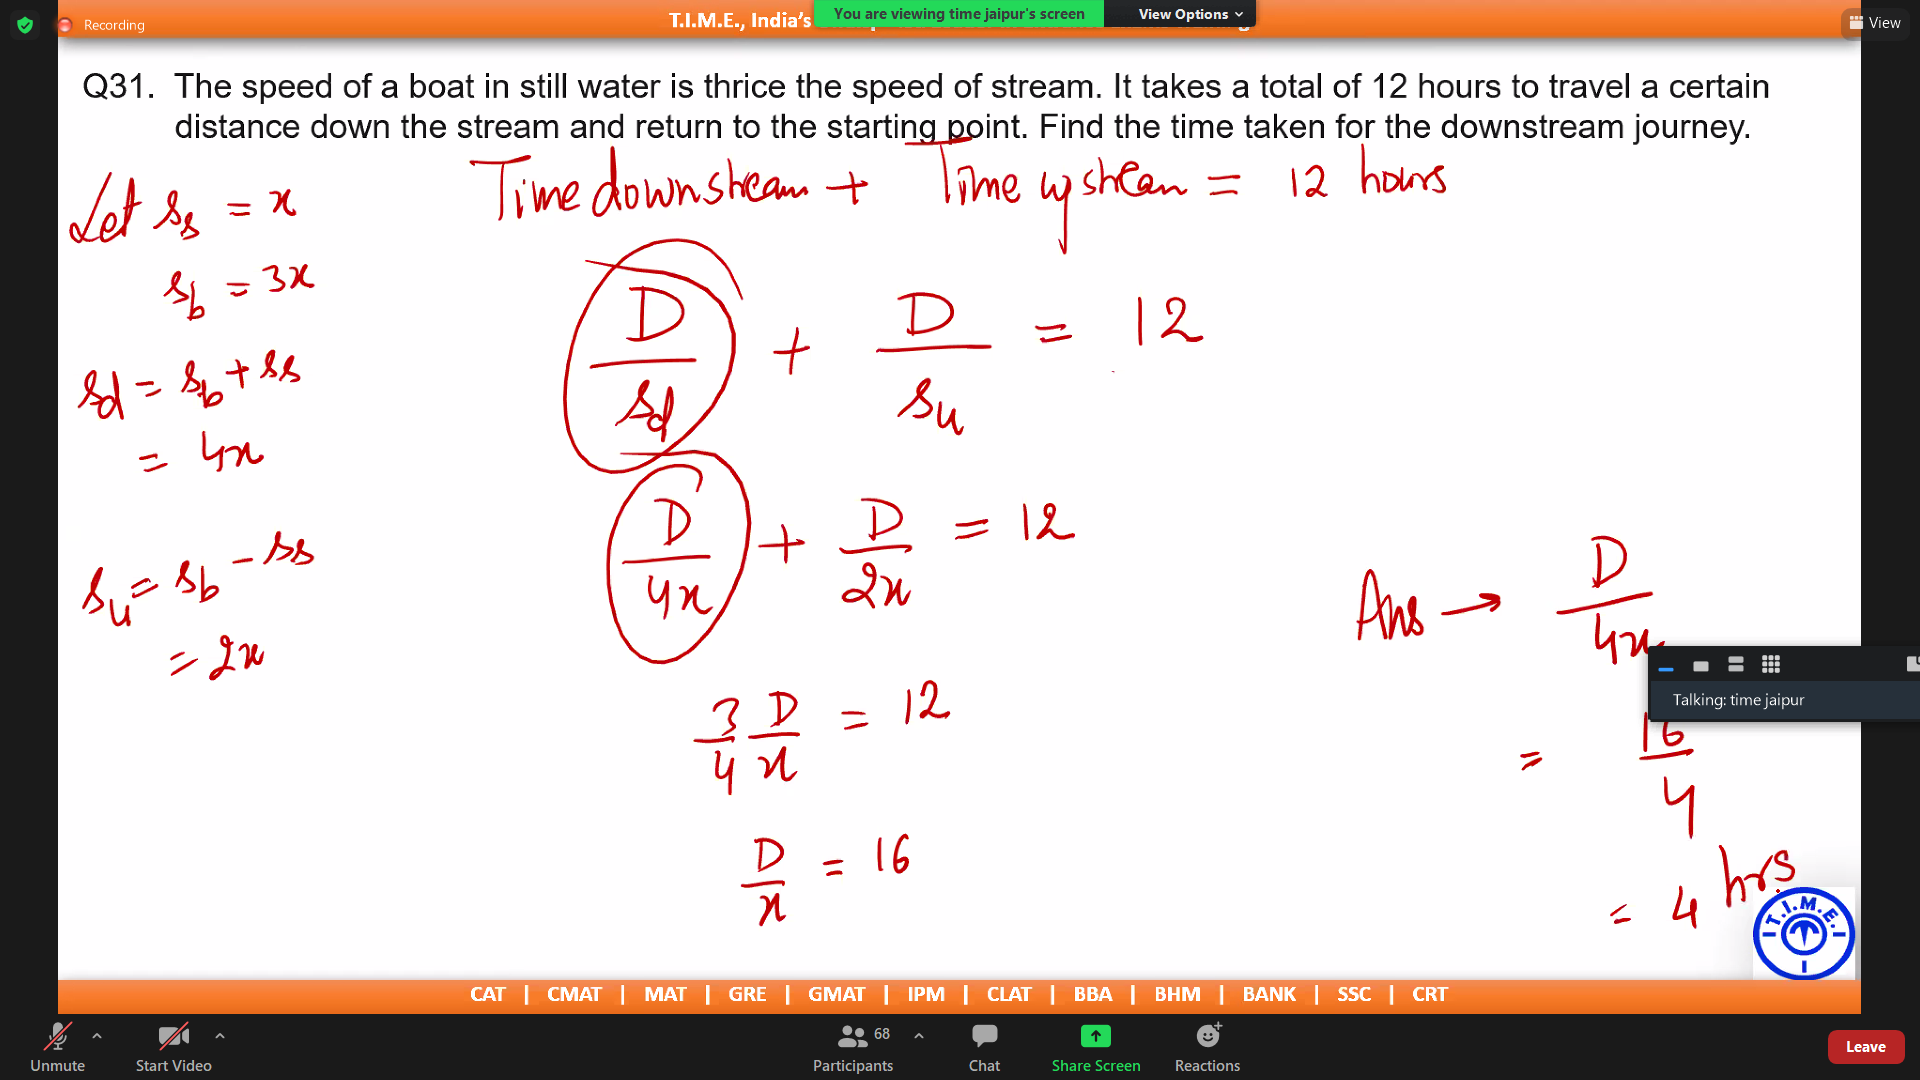 Recording
T.I.M.E., India's
You are viewing time jaipur's screen
View Options
View
Q31. The speed of a boat in still water is thrice the speed of stream. It takes a total of 12 hours to travel a certain
distance down the stream and return to the starting point. Find the time taken for the downstream journey.
Time downstream + Time upstream = 12 hours
Let Ss = x
Sb = 3x
Sd = Sb + Ss
= 4x
Su = Sb - Ss
= 2x
D/Sd + D/Su = 12
D/4x + D/2x = 12
3/4 D/x = 12
D/x = 16
Ans → D/4x
= 16/4
= 4 hrs
Talking: time jaipur
T.I.M.E.
CAT | CMAT | MAT | GRE | GMAT | IPM | CLAT | BBA | BHM | BANK | SSC | CRT
Unmute
Start Video
68
Participants
Chat
Share Screen
Reactions
Leave